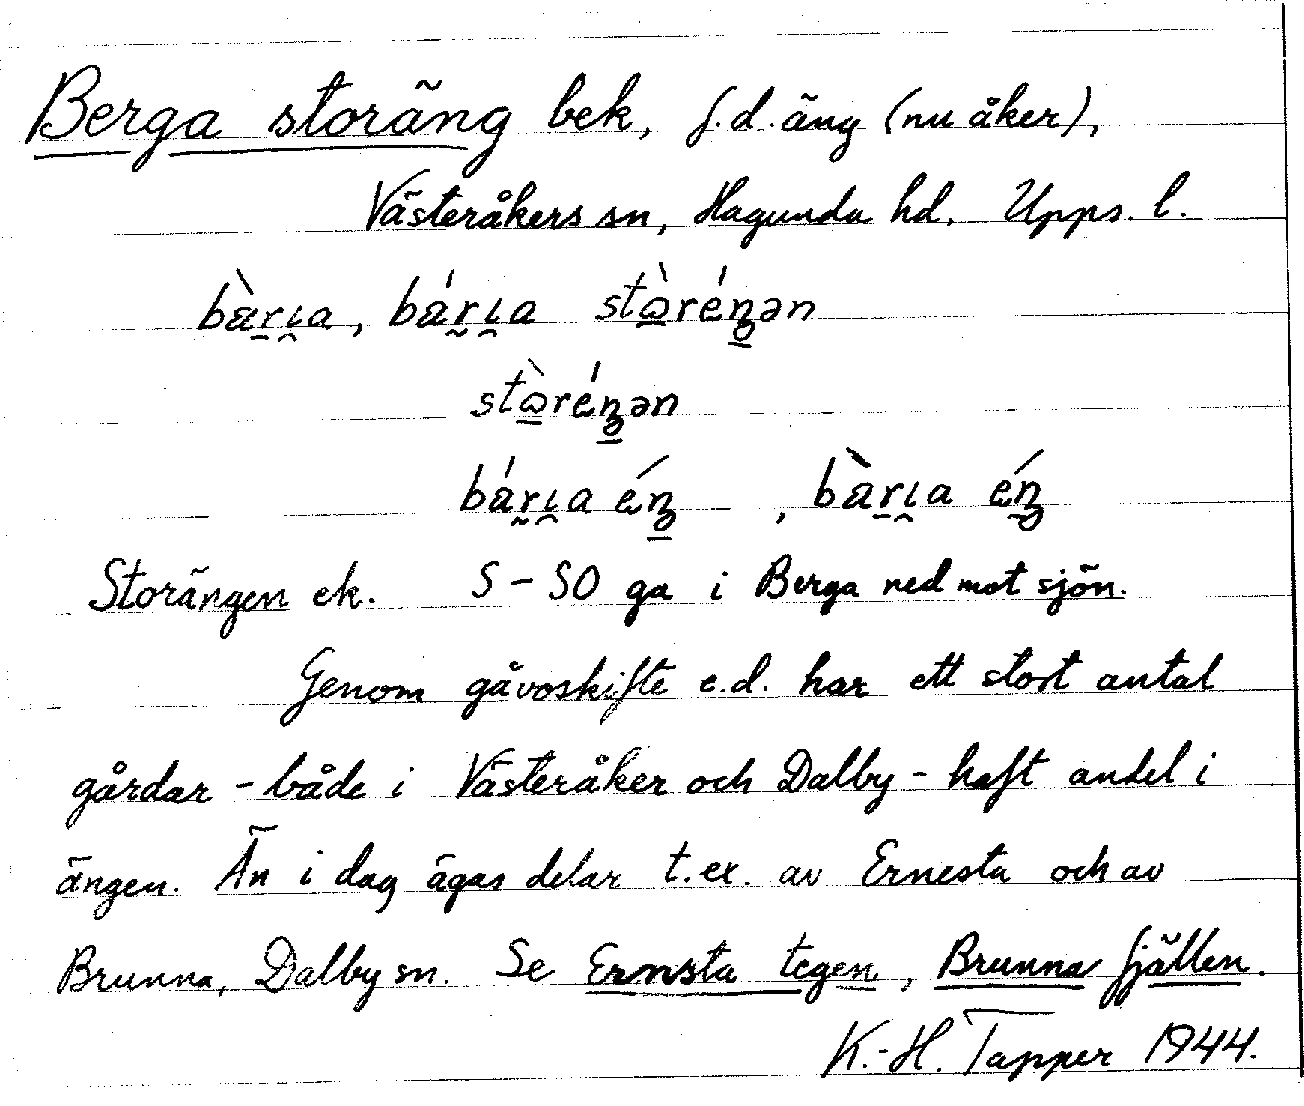 Berga storäng bek, f.d. äng (nu åker),
Västeråkers sn, Hagunda hd. Upps. l.
bæ̀rɩa, bǽrɩa stɷ̀réŋən
stɷ̀réŋən
bǽrɩa éŋ, bæ̀rɩa éŋ
Storängen ek. S-SO ga i Berga ned mot sjön.
Genom gåvoskifte e.d. har ett stort antal
gårdar - både i Västeråker och Dalby - haft andel i
ängen. Än i dag ägas delar t.ex. av Ernesta och av
Brunna, Dalby sn. Se Ernsta tegen, Brunna fjällen.
K.-H. Tapper 1944.